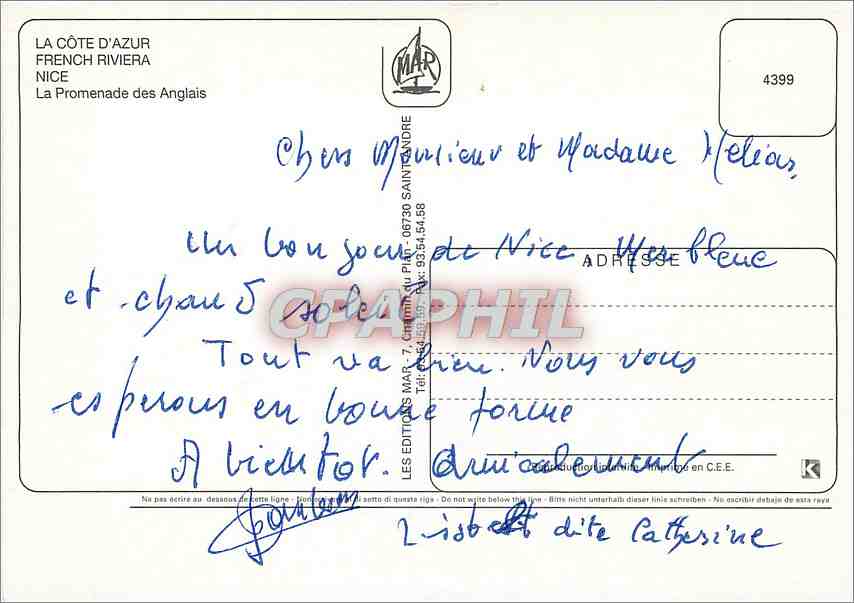 LA CÔTE D'AZUR
FRENCH RIVIERA
NICE
La Promenade des Anglais
MAR
4399
Chers Monsieur et Madame Helias,
Un bonjour de Nice Mer bleue
ADRESSE
et chaud soleil
CPAPHIL
Tout va bien. Nous vous
esperons en bonne forme
A bientot. Amicalement
Reproduction interdite - Imprimé en C.E.E.
K
LES EDITIONS MAR - 7, Chemin du Plan - 06730 SAINT-ANDRE
Fax: 93.54.54.58
Ne pas écrire au dessous de cette ligne - Non scrivere al di sotto di questa riga - Do not write below this line - Bitte nicht unterhalb dieser linie schreiben - No escribir debajo de esta raya
dite Catherine